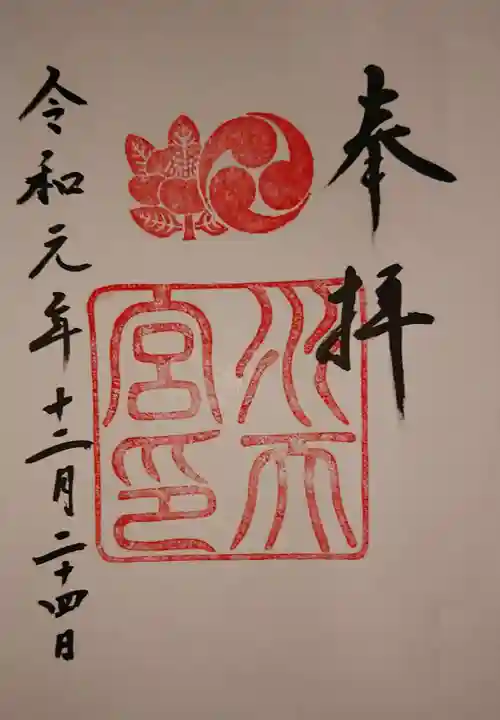 奉拝
水天宮印
令和元年十二月二十四日